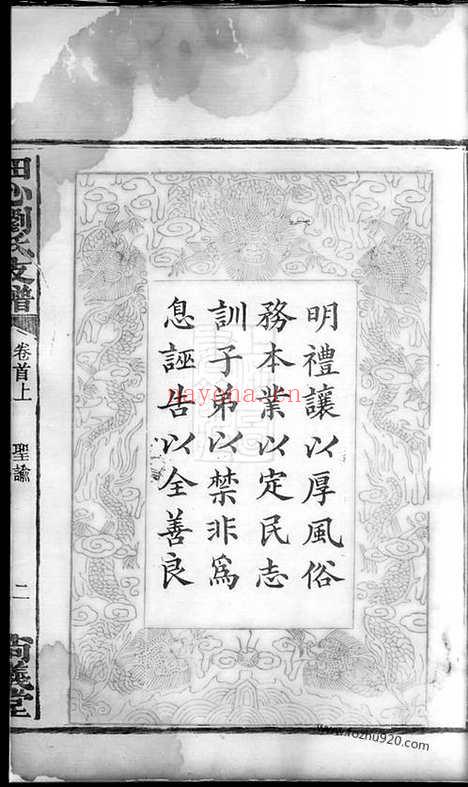 明禮讓以厚風俗
務本業以定民志
訓子弟以禁非爲
息誣告以全善良
田心劉氏支譜
卷首上
聖諭
二
尙義堂
nayona.cn
www.fozhu920.com